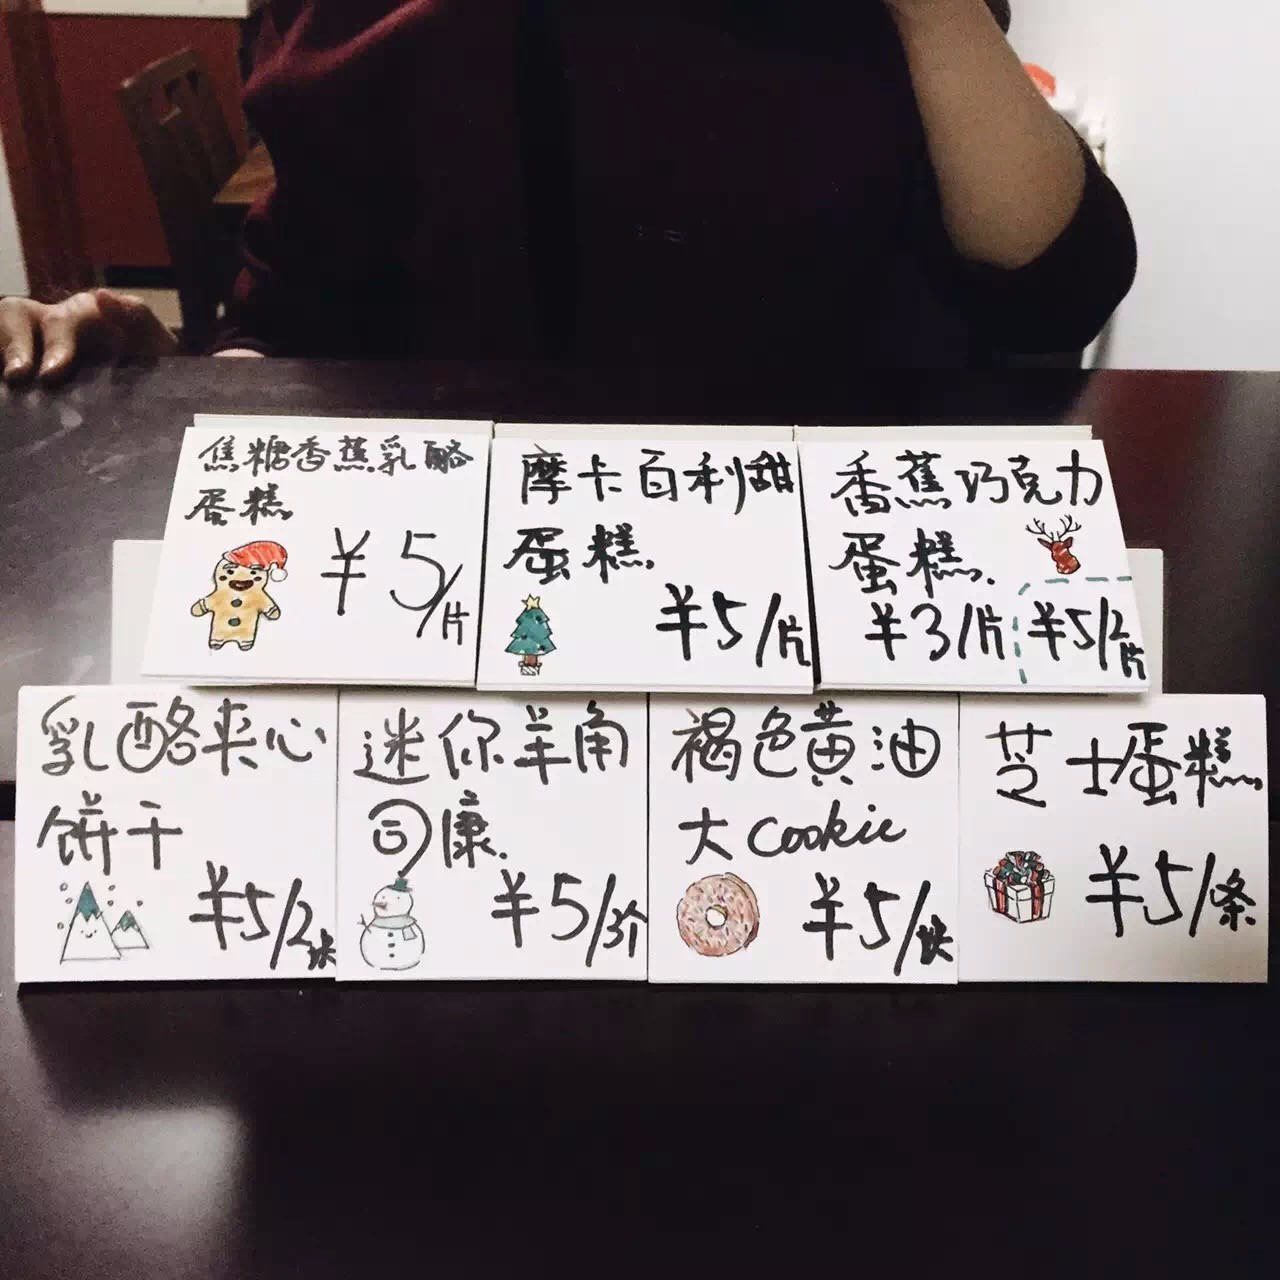 焦糖香蕉乳酪
蛋糕
¥5/片
摩卡百利甜
蛋糕
¥5/片
香蕉巧克力
蛋糕.
¥3/片
¥5/2片
乳酪夹心
饼干
¥5/2块
迷你羊角
司康.
¥5/3个
褐色黄油
大cookie
¥5/块
芝士蛋糕
¥5/条